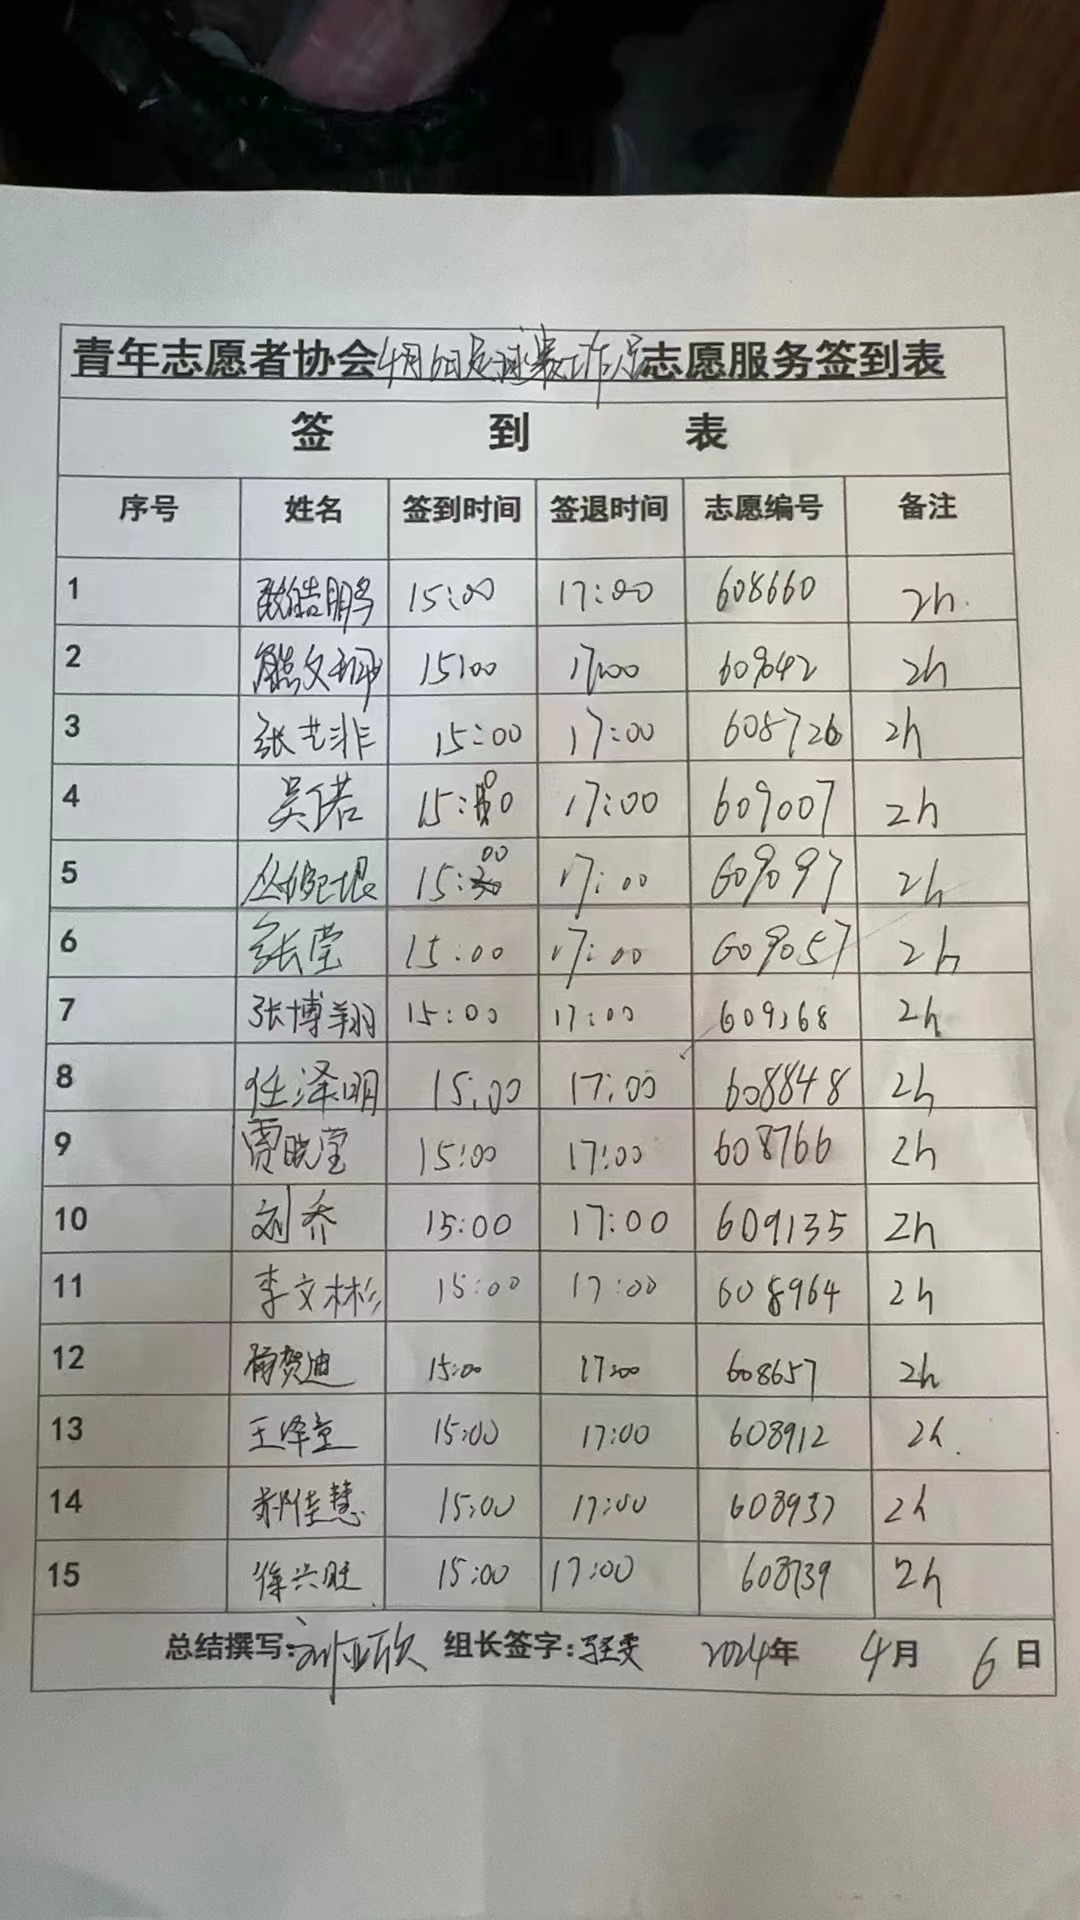 青年志愿者协会4月6日足球赛工作人员志愿服务签到表
签 到 表
序号 姓名 签到时间 签退时间 志愿编号 备注
1 皓鹏 15:00 17:00 608660 2h.
2 熊文 15:00 17:00 609042 2h
3 张艺非 15:00 17:00 608726 2h
4 吴偌 15:00 17:00 609007 2h
5 丛 15:00 17:00 609097 2h
6 张莹 15:00 17:00 609057 2h
7 张博翔 15:00 17:00 609368 2h
8 任泽明 15:00 17:00 608848 2h
9 贾晓莹 15:00 17:00 608766 2h
10 刘乔 15:00 17:00 609135 2h
11 李文彬 15:00 17:00 608964 2h
12 杨贺迪 15:00 17:00 608657 2h
13 王泽童 15:00 17:00 608912 2h.
14 郑佳慧 15:00 17:00 608937 2h
15 徐兴旺 15:00 17:00 608739 2h
总结撰写:刘亚欣 组长签字: 2024年 4月 6日